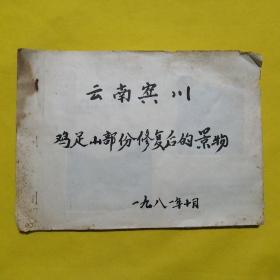 云南宾川
鸡足山部份修复后的景物
一九八一年十月